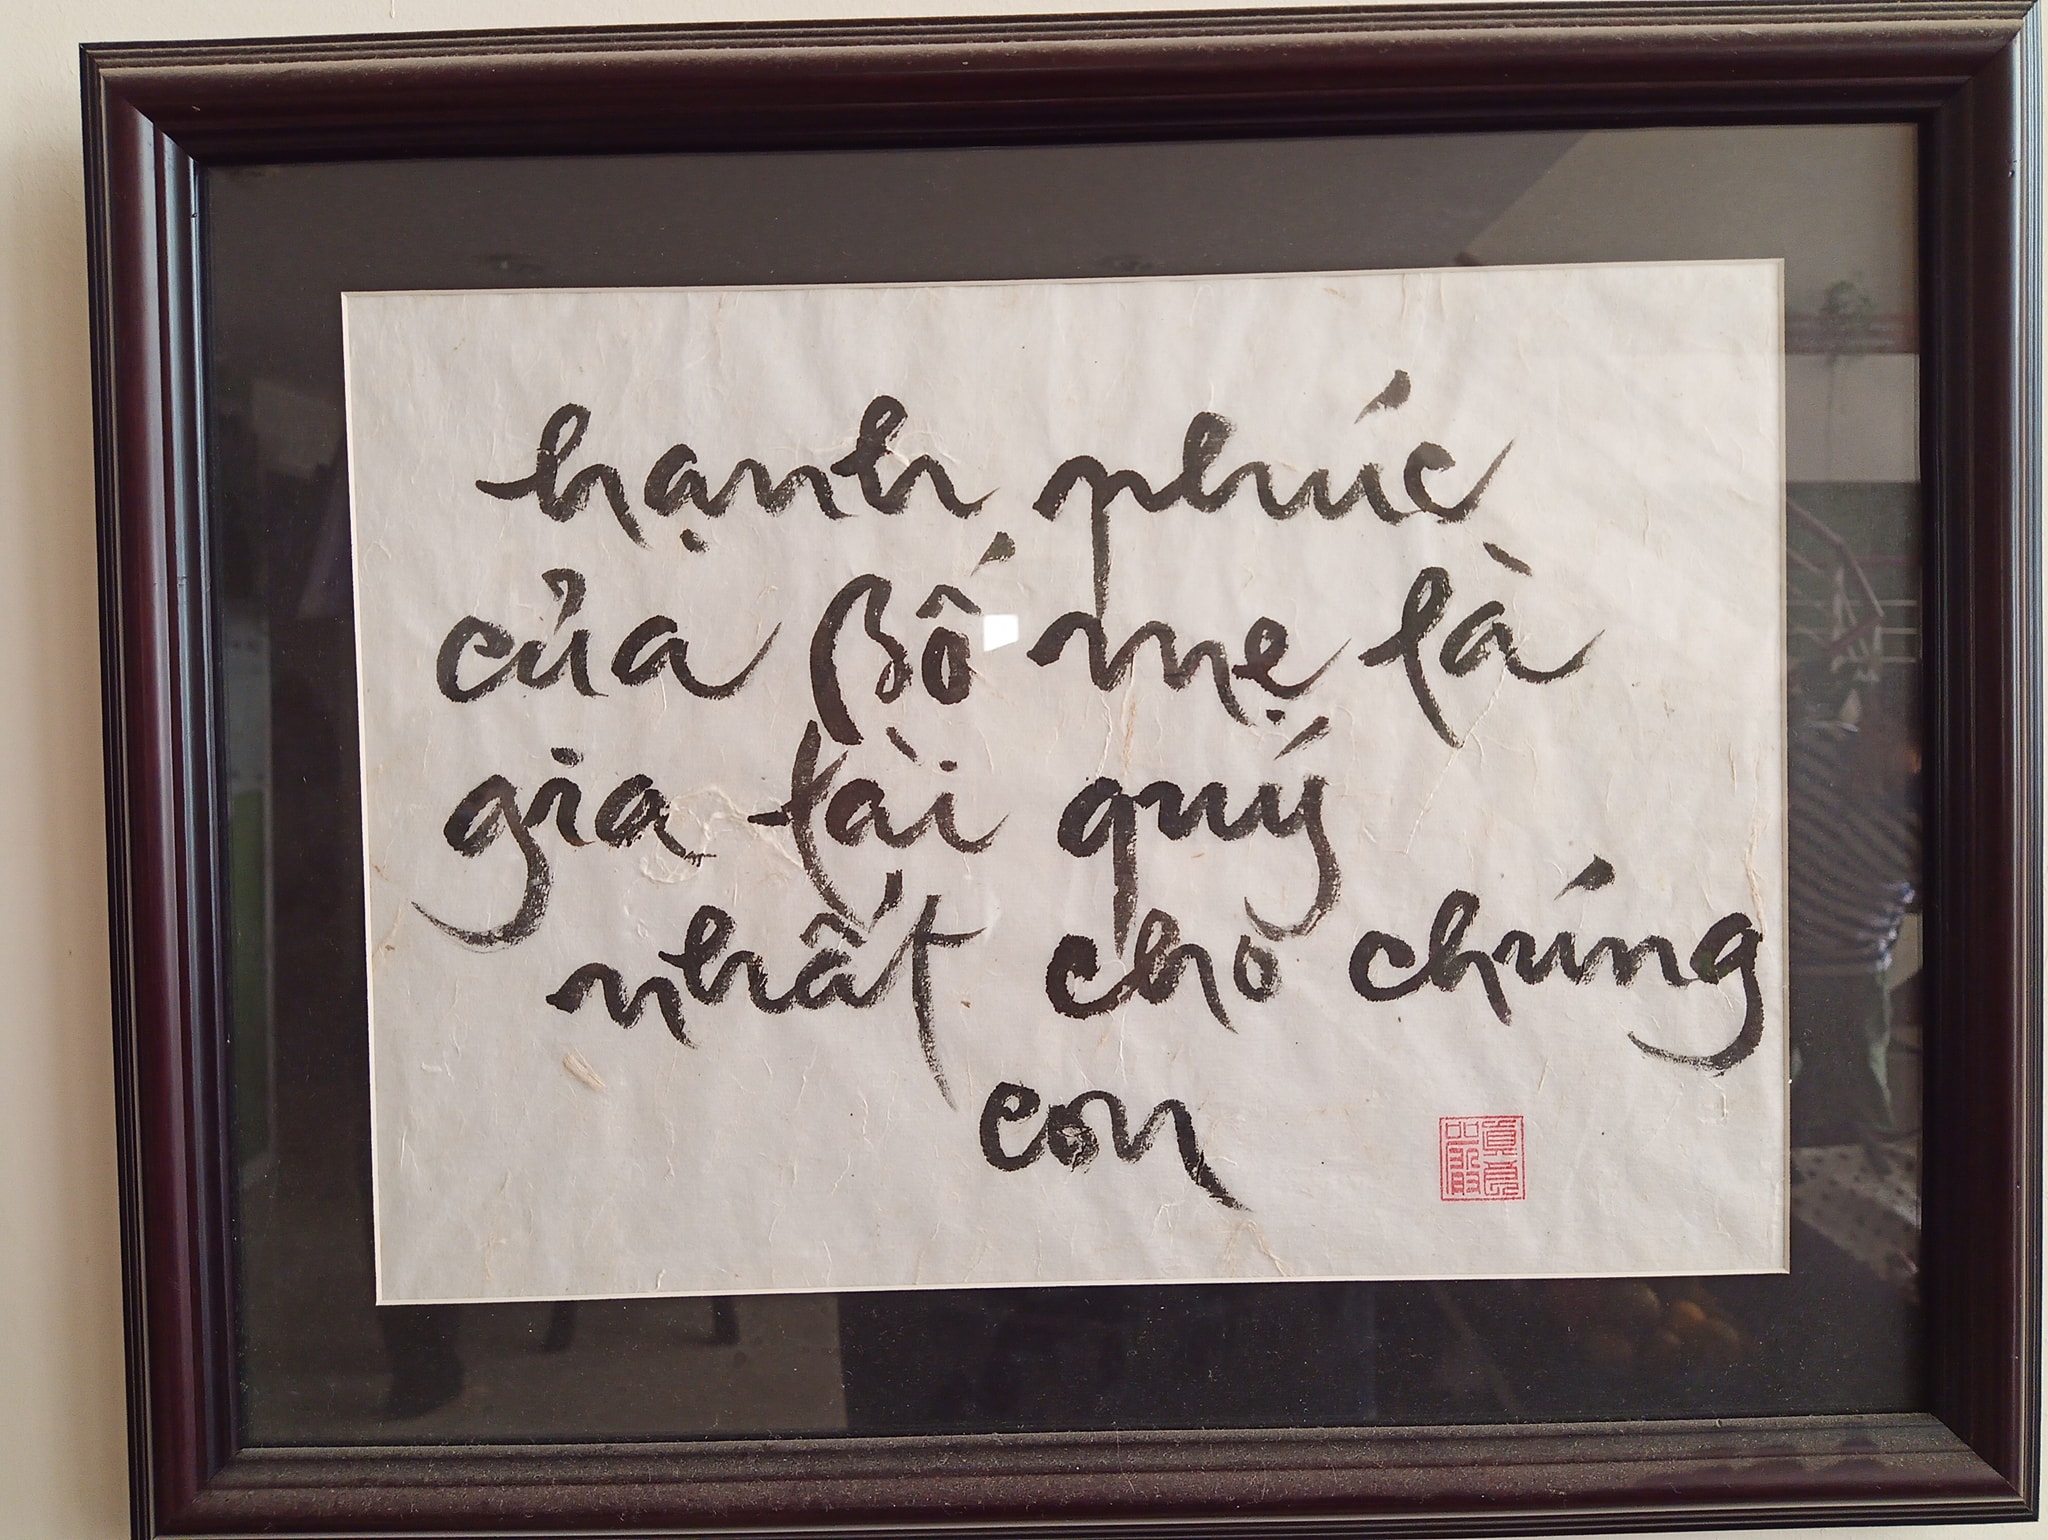 hạnh phúc
của Bố mẹ là
gia tài quý
nhất cho chúng
con